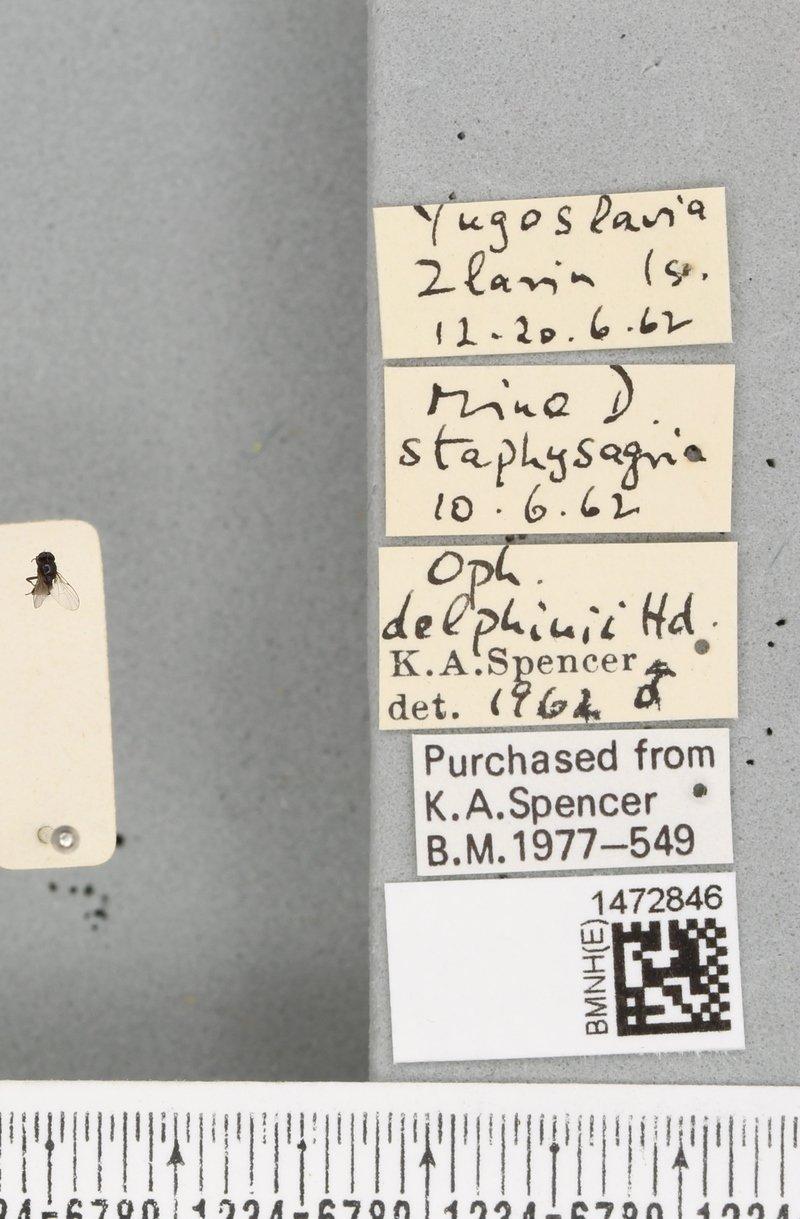 Yugoslavia
Zlarin Is.
12-20.6.62
Mine D.
staphysagria
10.6.62
Oph.
delphinii Hd.
K.A.Spencer
det. 1962 ♂
Purchased from
K.A.Spencer
B.M.1977–549
1472846
BMNH(E)
34 6789 1234 6789 1234 6789 1234